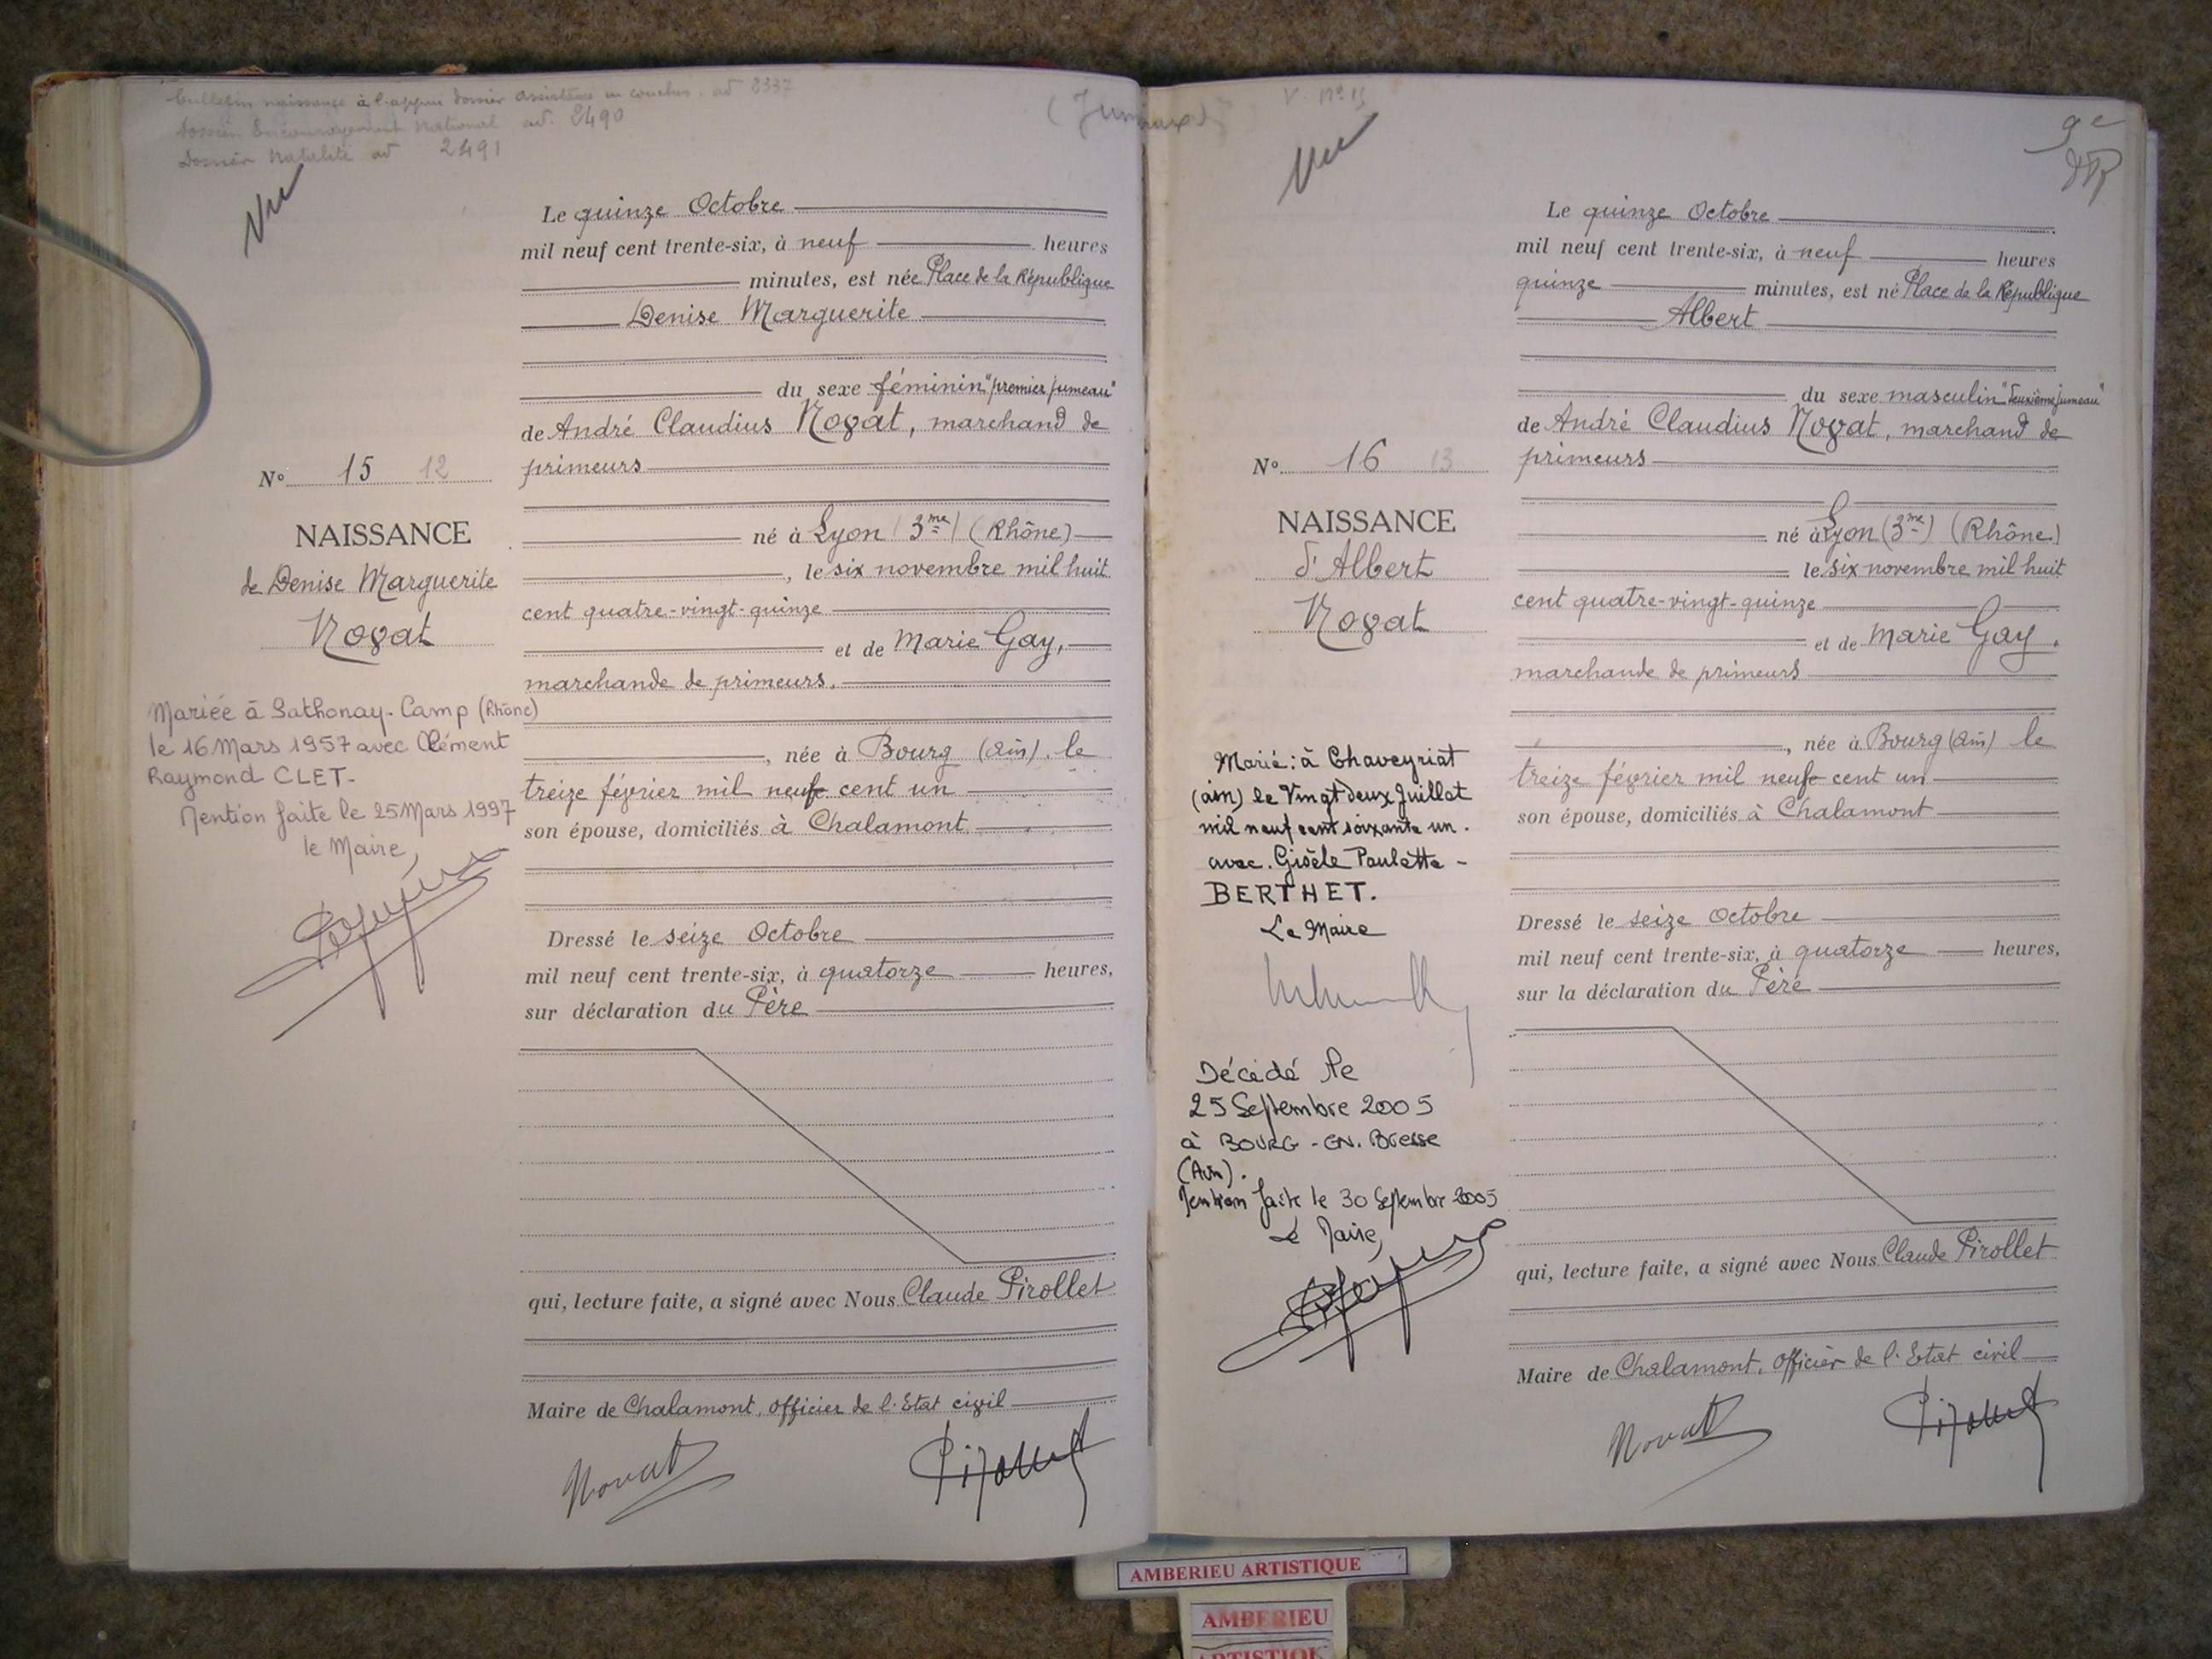 bulletin naissance à l'appui dossier assistance en couches. ad 2337
Dossier Encouragement National ad. 2490
Dossier Natalité ad 2491
(Jumeaux)
Vu
Le quinze Octobre
mil neuf cent trente-six, à neuf heures
minutes, est née Place de la République
Denise Marguerite
du sexe féminin "premier jumeau"
de André Claudius Novat, marchand de
primeurs
N° 15 12
NAISSANCE
de Denise Marguerite
Novat
né à Lyon (3me) (Rhône)
, le six novembre mil huit
cent quatre-vingt-quinze
et de Marie Gay,
marchande de primeurs.
Mariée à Sathonay-Camp (Rhône)
le 16 Mars 1957 avec Clément
Raymond CLET-
Mention faite le 25 Mars 1997
le Maire,
, née à Bourg (Ain), le
treize février mil neuf cent un
son épouse, domiciliés à Chalamont
Dressé le seize Octobre
mil neuf cent trente-six, à quatorze heures,
sur déclaration du Père
qui, lecture faite, a signé avec Nous Claude Pirollet
Maire de Chalamont, officier de l'Etat civil
Novat Pirollet
V. N° 15
Vu
9e
Le quinze Octobre
mil neuf cent trente-six, à neuf heures
quinze minutes, est né Place de la République
Albert
du sexe masculin "deuxième jumeau"
de André Claudius Novat, marchand de
primeurs
N° 16 13
NAISSANCE
d'Albert
Novat
né à Lyon (3me) (Rhône)
le six novembre mil huit
cent quatre-vingt-quinze
et de Marie Gay.
marchande de primeurs
Marié: à Chaveyriat
(ain) le Vingt deux Juillet
mil neuf cent soixante un.
avec. Gisèle Paulette -
BERTHET.
Le Maire
Décédé le
25 Septembre 2005
à BOURG-EN-Bresse
(Ain).
Mention faite le 30 Septembre 2005
Le Maire,
, née à Bourg (Ain) le
treize février mil neuf cent un
son épouse, domiciliés à Chalamont
Dressé le seize Octobre
mil neuf cent trente-six, à quatorze heures,
sur la déclaration du Père
qui, lecture faite, a signé avec Nous Claude Pirollet
Maire de Chalamont, officier de l'Etat civil
Novat Pirollet
AMBERIEU ARTISTIQUE
AMBERIEU
ARTISTIQU